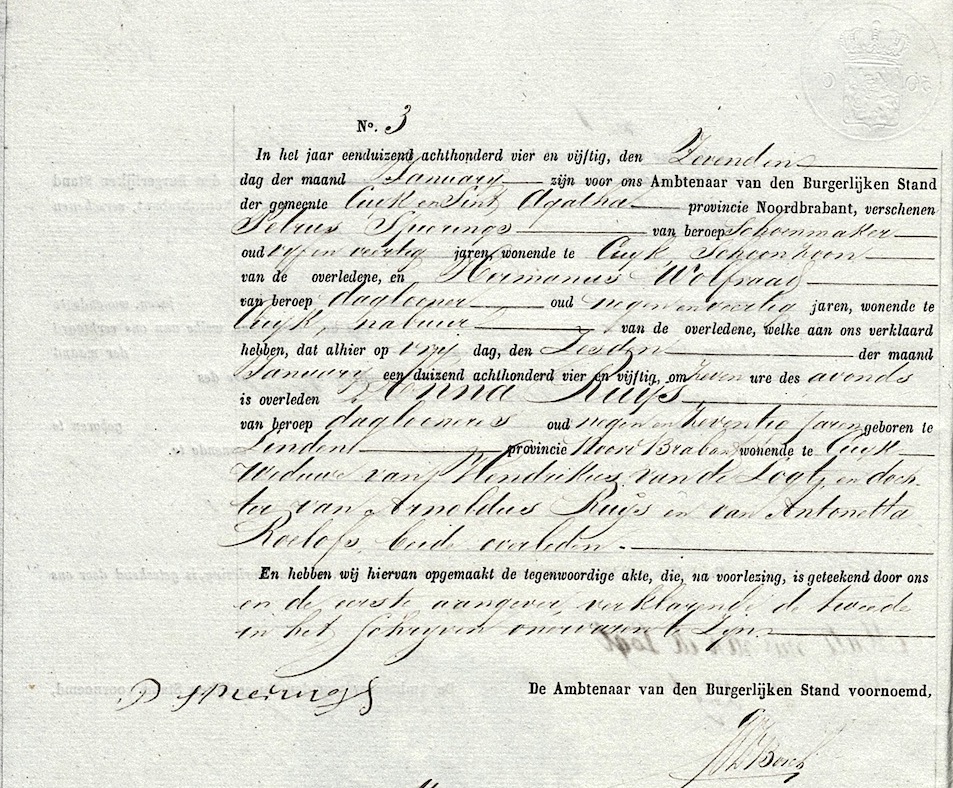 No. 3
In het jaar eenduizend achthonderd vier en vijftig, den Zevenden
dag der maand January zijn voor ons Ambtenaar van den Burgerlijken Stand
der gemeente Cuyk en Sint Agatha provincie Noordbrabant, verschenen
Petrus Spierings van beroep Schoenmaker
oud vyf en veertig jaren, wonende te Cuyk, Schoonzoon
van de overledene, en Hermanus Wolfraad
van beroep daglooner oud negen en veertig jaren, wonende te
Cuyk, nabuur van de overledene, welke aan ons verklaard
hebben, dat alhier op vry dag, den Zesden der maand
January een duizend achthonderd vier en vijftig, om zeven ure des avonds
is overleden Anna Ruijs
van beroep daglooneres oud negen en zeventig jaren geboren te
Linden provincie Noord Braband wonende te Cuyk
Weduwe van Hendrikus van de Logt, en doch
ter van Arnoldus Ruijs en van Antonetta
Roelofs, beide overleden.
En hebben wij hiervan opgemaakt de tegenwoordige akte, die, na voorlezing, is geteekend door ons
en de eerste aangever, verklarende de tweede
in het schryven onervaren te zyn.
De Ambtenaar van den Burgerlijken Stand voornoemd,
P Spierings